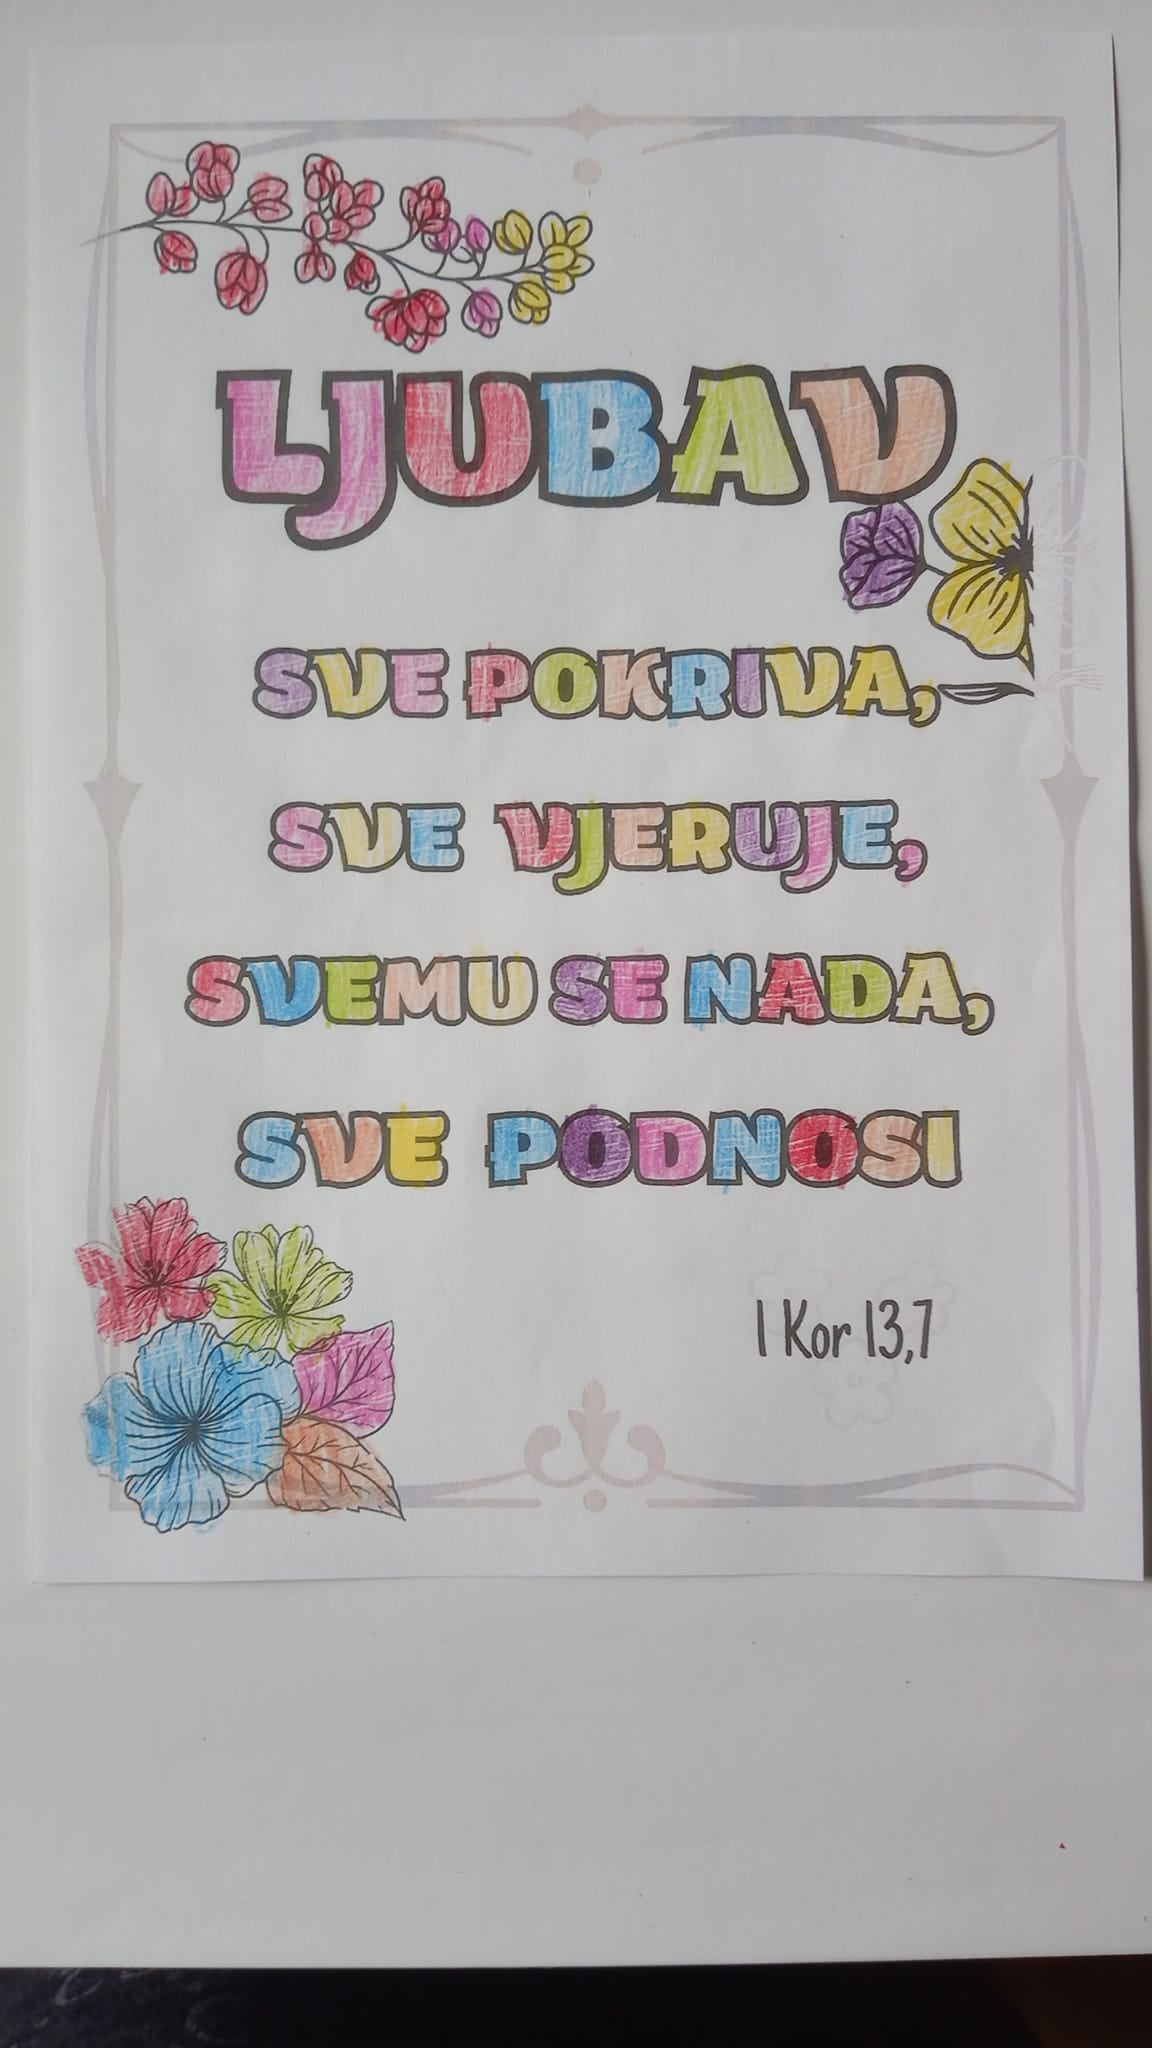 LJUBAV
SVE POKRIVA,
SVE VJERUJE,
SVEMU SE NADA,
SVE PODNOSI
1 Kor 13,7